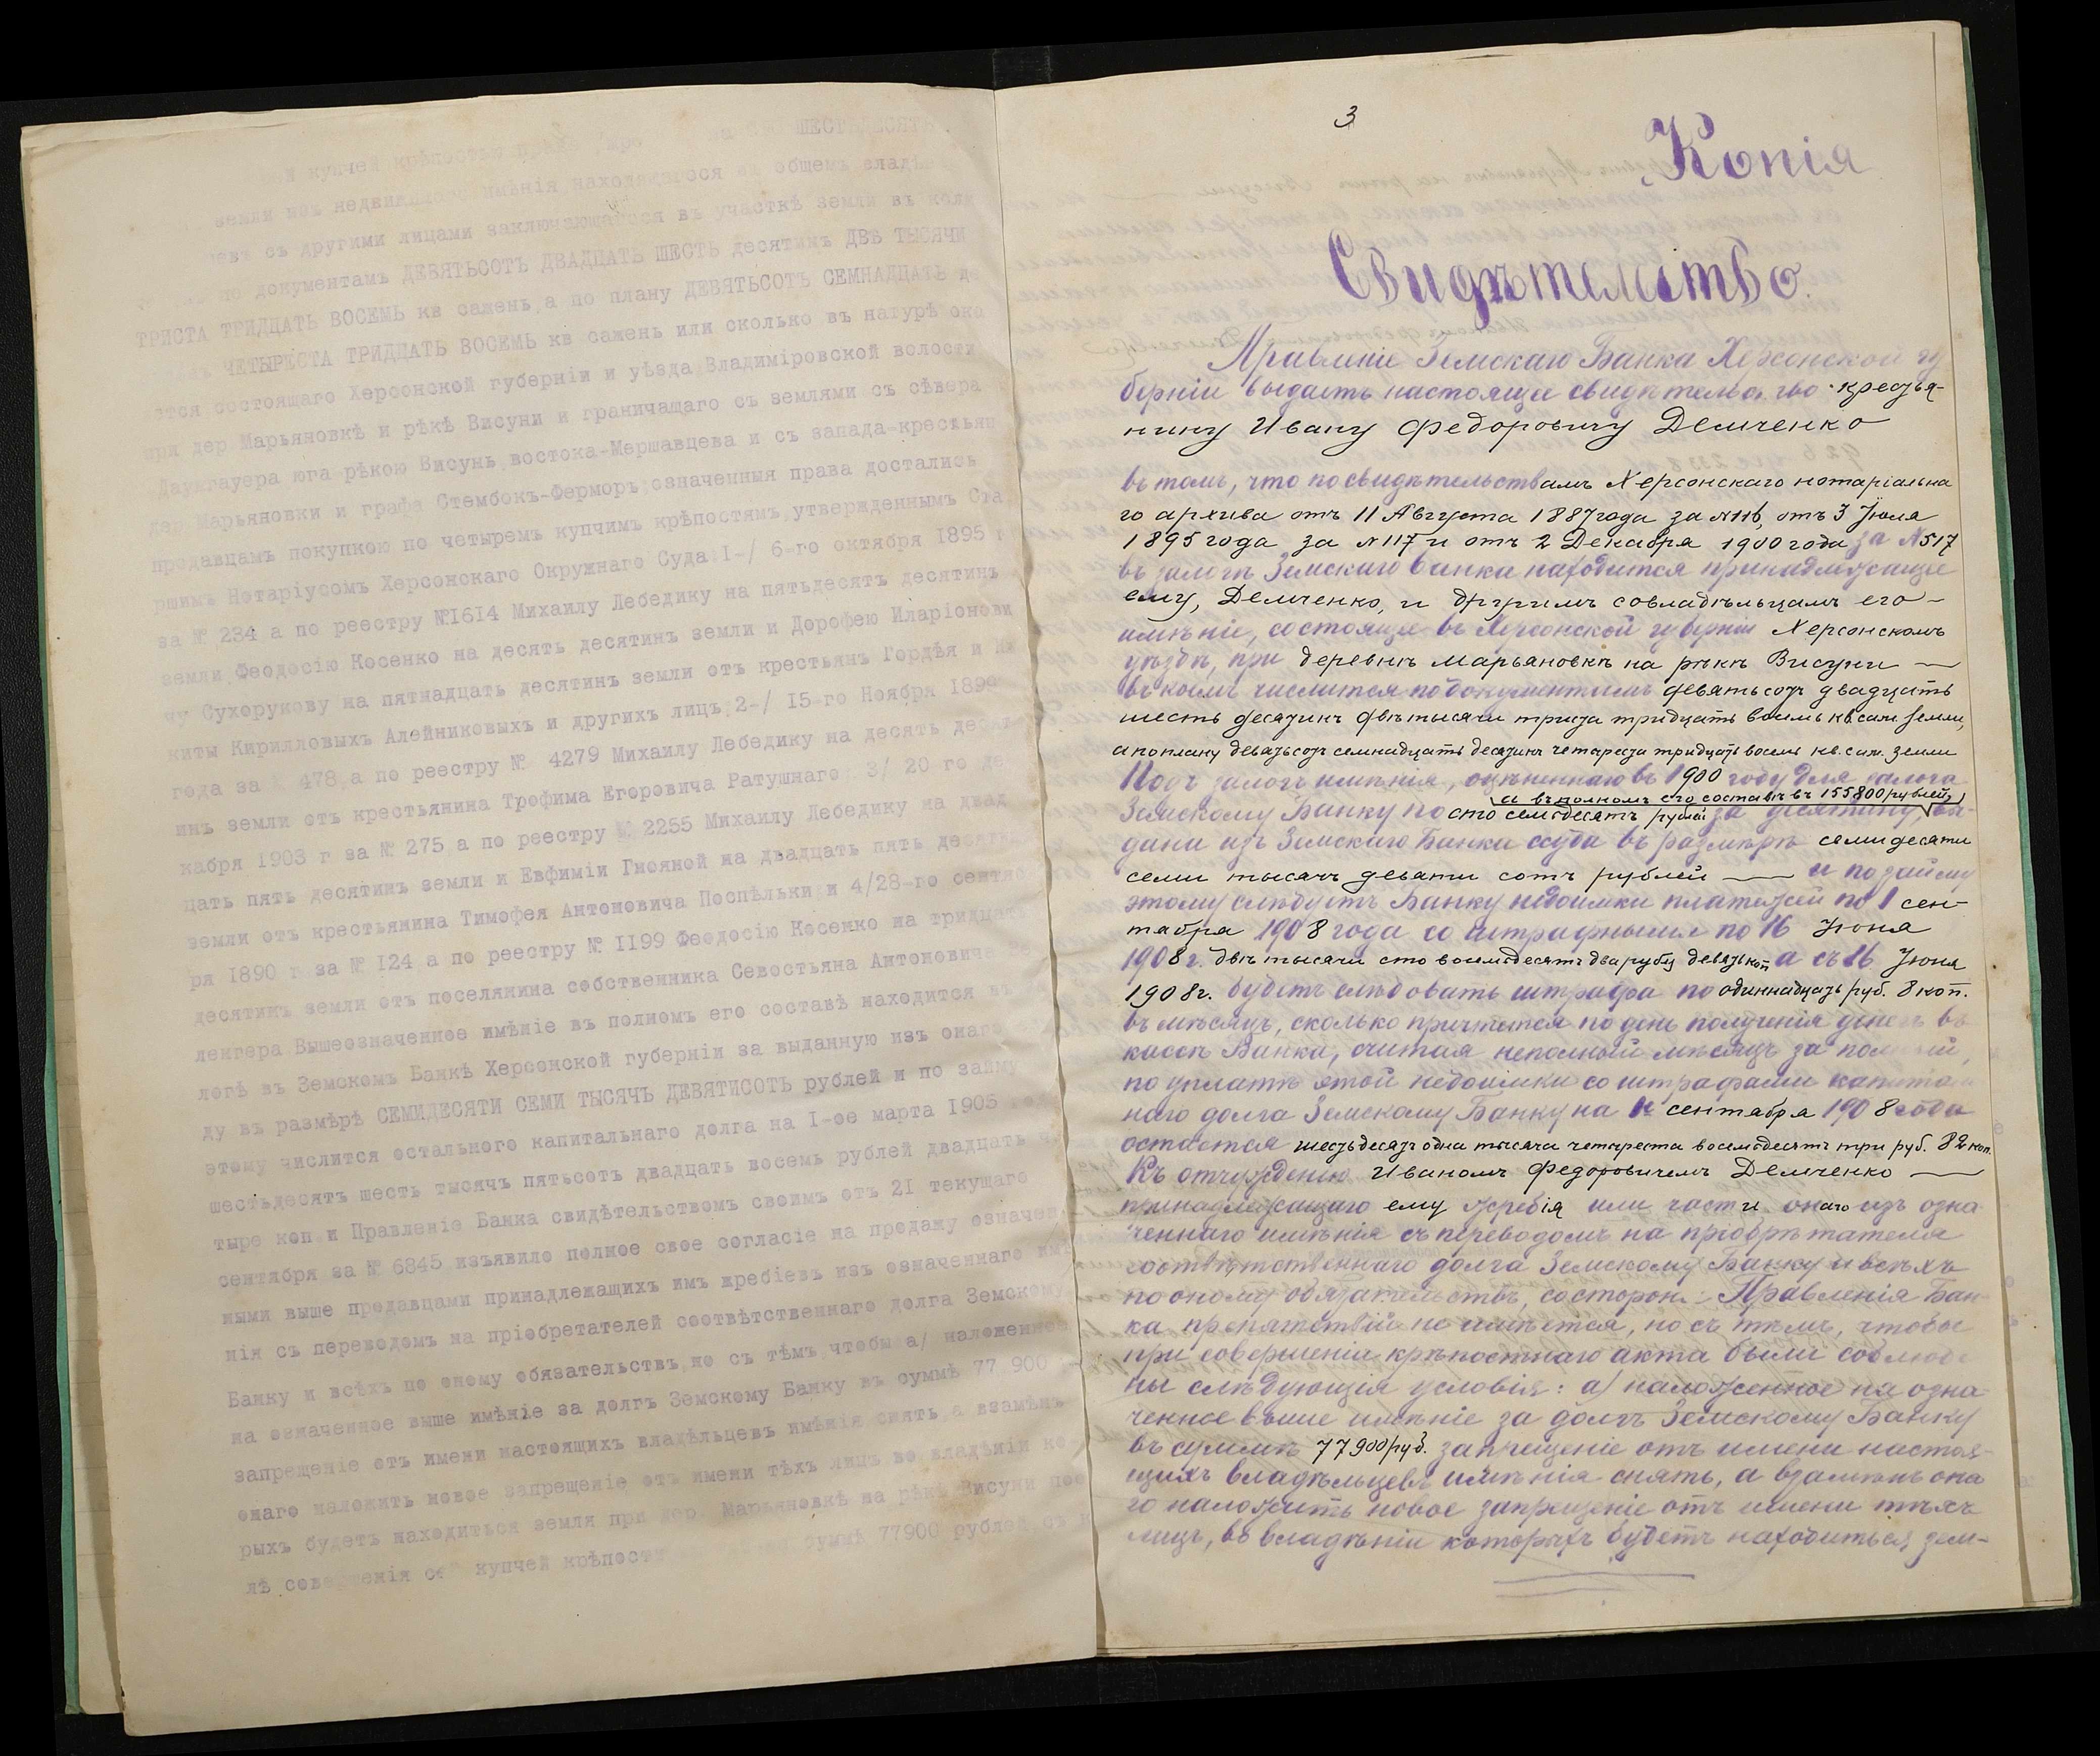 купчей крѣпостью ШЕСТЬДЕСЯТЪ
земли изъ недвижимаго имѣнія находящагося въ общемъ владѣ
съ другими лицами заключающагося въ участкѣ земли въ коли
по документамъ ДЕВЯТЬСОТЪ ДВАДЦАТЬ ШЕСТЬ десятинъ ДВѢ ТЫСЯЧИ
ТРИСТА ТРИДЦАТЬ ВОСЕМЬ кв сажень,а по плану ДЕВЯТЬСОТЪ СЕМНАДЦАТЬ де
ЧЕТЫРЕСТА ТРИДЦАТЬ ВОСЕМЬ кв сажень или сколько въ натурѣ ока
ется состоящаго Херсонской губерніи и уѣзда Владиміровской волости
при дер Марьяновкѣ и рѣкѣ Висуни и граничащаго съ землями съ сѣвера
юга рѣкою Висунь востока-Мершавцева и съ запада-крестьян
дер Марьяновки и графа Стембокъ-Ферморъ;означенныя права достались
продавцамъ покупкою по четыремъ купчимъ крѣпостямъ,утвержденнымъ Ста
ршимъ Нотаріусомъ Херсонскаго Окружнаго Суда:1-/ 6-го октября 1895 г
за № 234 а по реестру №1614 Михаилу Лебедику на пятьдесятъ десятинъ
земли,Феодосію Косенко на десять десятинъ земли и Дорофею Иларіонови
чу Сухорукову на пятнадцать десятинъ земли отъ крестьянъ Гордѣя и Ни
киты Кирилловыхъ Алейниковыхъ и другихъ лицъ;2-/ 15-го Ноября 1899
года за № 478,а по реестру № 4279 Михаилу Лебедику на десять деся
инъ земли отъ крестьянина Трофима Егоровича Ратушнаго; 3/ 20 го де
кабря 1903 г за № 275 а по реестру № 2255 Михаилу Лебедику на двад
цать пять десятинъ земли и Евфиміи Гмояной на двадцать пять десят
земли отъ крестьянина Тимофея Антоновича Поспѣльки и 4/28-го сентяб
ря 1890 г за № 124 а по реестру № 1199 Феодосію Косенко на тридцать
десятинъ земли отъ поселянина собственника Севостьяна Антоновича
лингера Вышеозначенное имѣніе въ полномъ его составѣ находится въ
логѣ въ Земскомъ Банкѣ Херсонской губерніи за выданную изъ онаго
ду въ размѣрѣ СЕМИДЕСЯТИ СЕМИ ТЫСЯЧЪ ДЕВЯТИСОТЪ рублей и по займу
этому числится остального капитальнаго долга на 1-ое марта 1905 год
шестьдесятъ шесть тысячъ пятьсотъ двадцать восемь рублей двадцать че
тыре коп и Правленіе Банка свидѣтельствомъ своимъ отъ 21 текущаго
сентября за № 6845 изъявило полное свое согласіе на продажу означен
ными выше продавцами принадлежащихъ имъ жребіевъ изъ означеннаго имѣ
нія съ переводомъ на пріобретателей соотвѣтственнаго долга Земскому
Банку и всѣхъ по оному обязательствъ,но съ тѣмъ чтобы а/ наложенное
на означенное выше имѣніе за долгъ Земскому Банку въ суммѣ 77 900
запрещеніе отъ имени настоящихъ владѣльцевъ имѣнія снять,а взамѣнъ
онаго наложить новое запрещеніе отъ имени тѣхъ лицъ во владѣніи ко
рыхъ будетъ находиться земля при дер Марьяновкѣ на рѣкѣ Висуни пос
лѣ совершенія сей купчей крѣпости суммѣ 77900 рублей съ
3
Копія
Свидѣтельство.
Правленіе Земскаго Банка Херсонской гу
берніи выдаетъ настоящее свидѣтельство крестья-
нину Ивану Федоровичу Демченко
въ томъ, что по свидѣтельствамъ Херсонскаго нотаріальна
го архива отъ 11 Августа 1887 года за №116, отъ 3 Іюля
1895 года за №117 и отъ 2 Декабря 1900 года за №517
въ залогѣ Земскаго банка находится принадлежащее
ему, Демченко, и другимъ совладѣльцамъ его -
имѣніе, состоящее въ Херсонской губерніи Херсонскомъ
уѣздѣ, при деревнѣ Марьяновкѣ на рѣкѣ Висуни —
въ коемъ числится по документамъ девятьсотъ двадцать
шесть десятинъ двѣ тысячи триста тридцать восемь кв. саж. земли,
а по плану девятьсотъ семнадцать десятинъ четыреста тридцать восемь кв. саж. земли
Подъ залогъ имѣнія, оцѣненнаго въ 1900 году для залога
а въ полномъ его составѣ въ 155800 рублей,
Земскому Банку по сто семьдесятъ рублей за десятину, вы-
дана изъ Земскаго Банка ссуда въ размѣрѣ семидесяти
семи тысячъ девяти сотъ рублей — и по займу
этому слѣдуетъ Банку недоимки платежей по 1 сен-
тября 1908 года со штрафными по 16 Іюня
1908 г. двѣ тысячи сто восемьдесятъ два рубл. девять коп. а съ 16 Іюня
1908 г. будетъ слѣдовать штрафа по одиннадцать руб. 8 коп.
въ мѣсяцъ, сколько причтется по день полученія денегъ въ
кассѣ Банка, считая неполный мѣсяцъ за полный,
по уплатѣ этой недоимки со штрафами капиталь
наго долга Земскому Банку на 1е сентября 1908 года
остается шестьдесятъ одна тысяча четыреста восемьдесятъ три руб. 82 коп.
Къ отчужденію Иваномъ Федоровичемъ Демченко —
принадлежащаго ему жребія или части онаго изъ озна
ченнаго имѣнія съ переводомъ на пріобрѣтателя
соотвѣтственнаго долга Земскому Банку и всѣхъ
по оному обязательствъ, со стороны Правленія Бан
ка препятствій не имѣется, но съ тѣмъ, чтобы
при совершеніи крѣпостнаго акта были соблюде
ны слѣдующія условія: а) наложенное на озна
ченное выше имѣніе за долгъ Земскому Банку
въ суммѣ 77900 руб. запрещеніе отъ имени настоя-
щихъ владѣльцевъ имѣнія снять, а взамѣнъ она
го наложить новое запрещеніе отъ имени тѣхъ
лицъ, въ владѣніи которыхъ будетъ находиться зем-